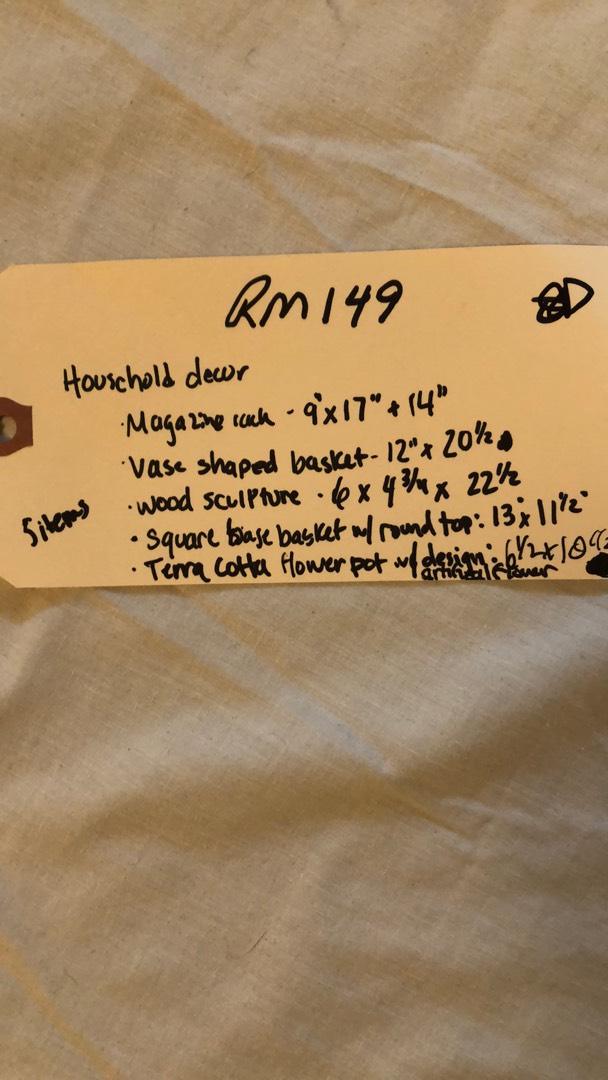 RM149
Household decor
· Magazine rack - 9" x 17" + 14"
· Vase shaped basket - 12" x 20 1/2
· Wood sculpture · 6 x 4 3/4 x 22 1/2
5 items
· Square base basket w/ round top: 13" x 11 1/2"
· Terra Cotta flower pot w/ design: 6 1/2 x 10
artificial flower